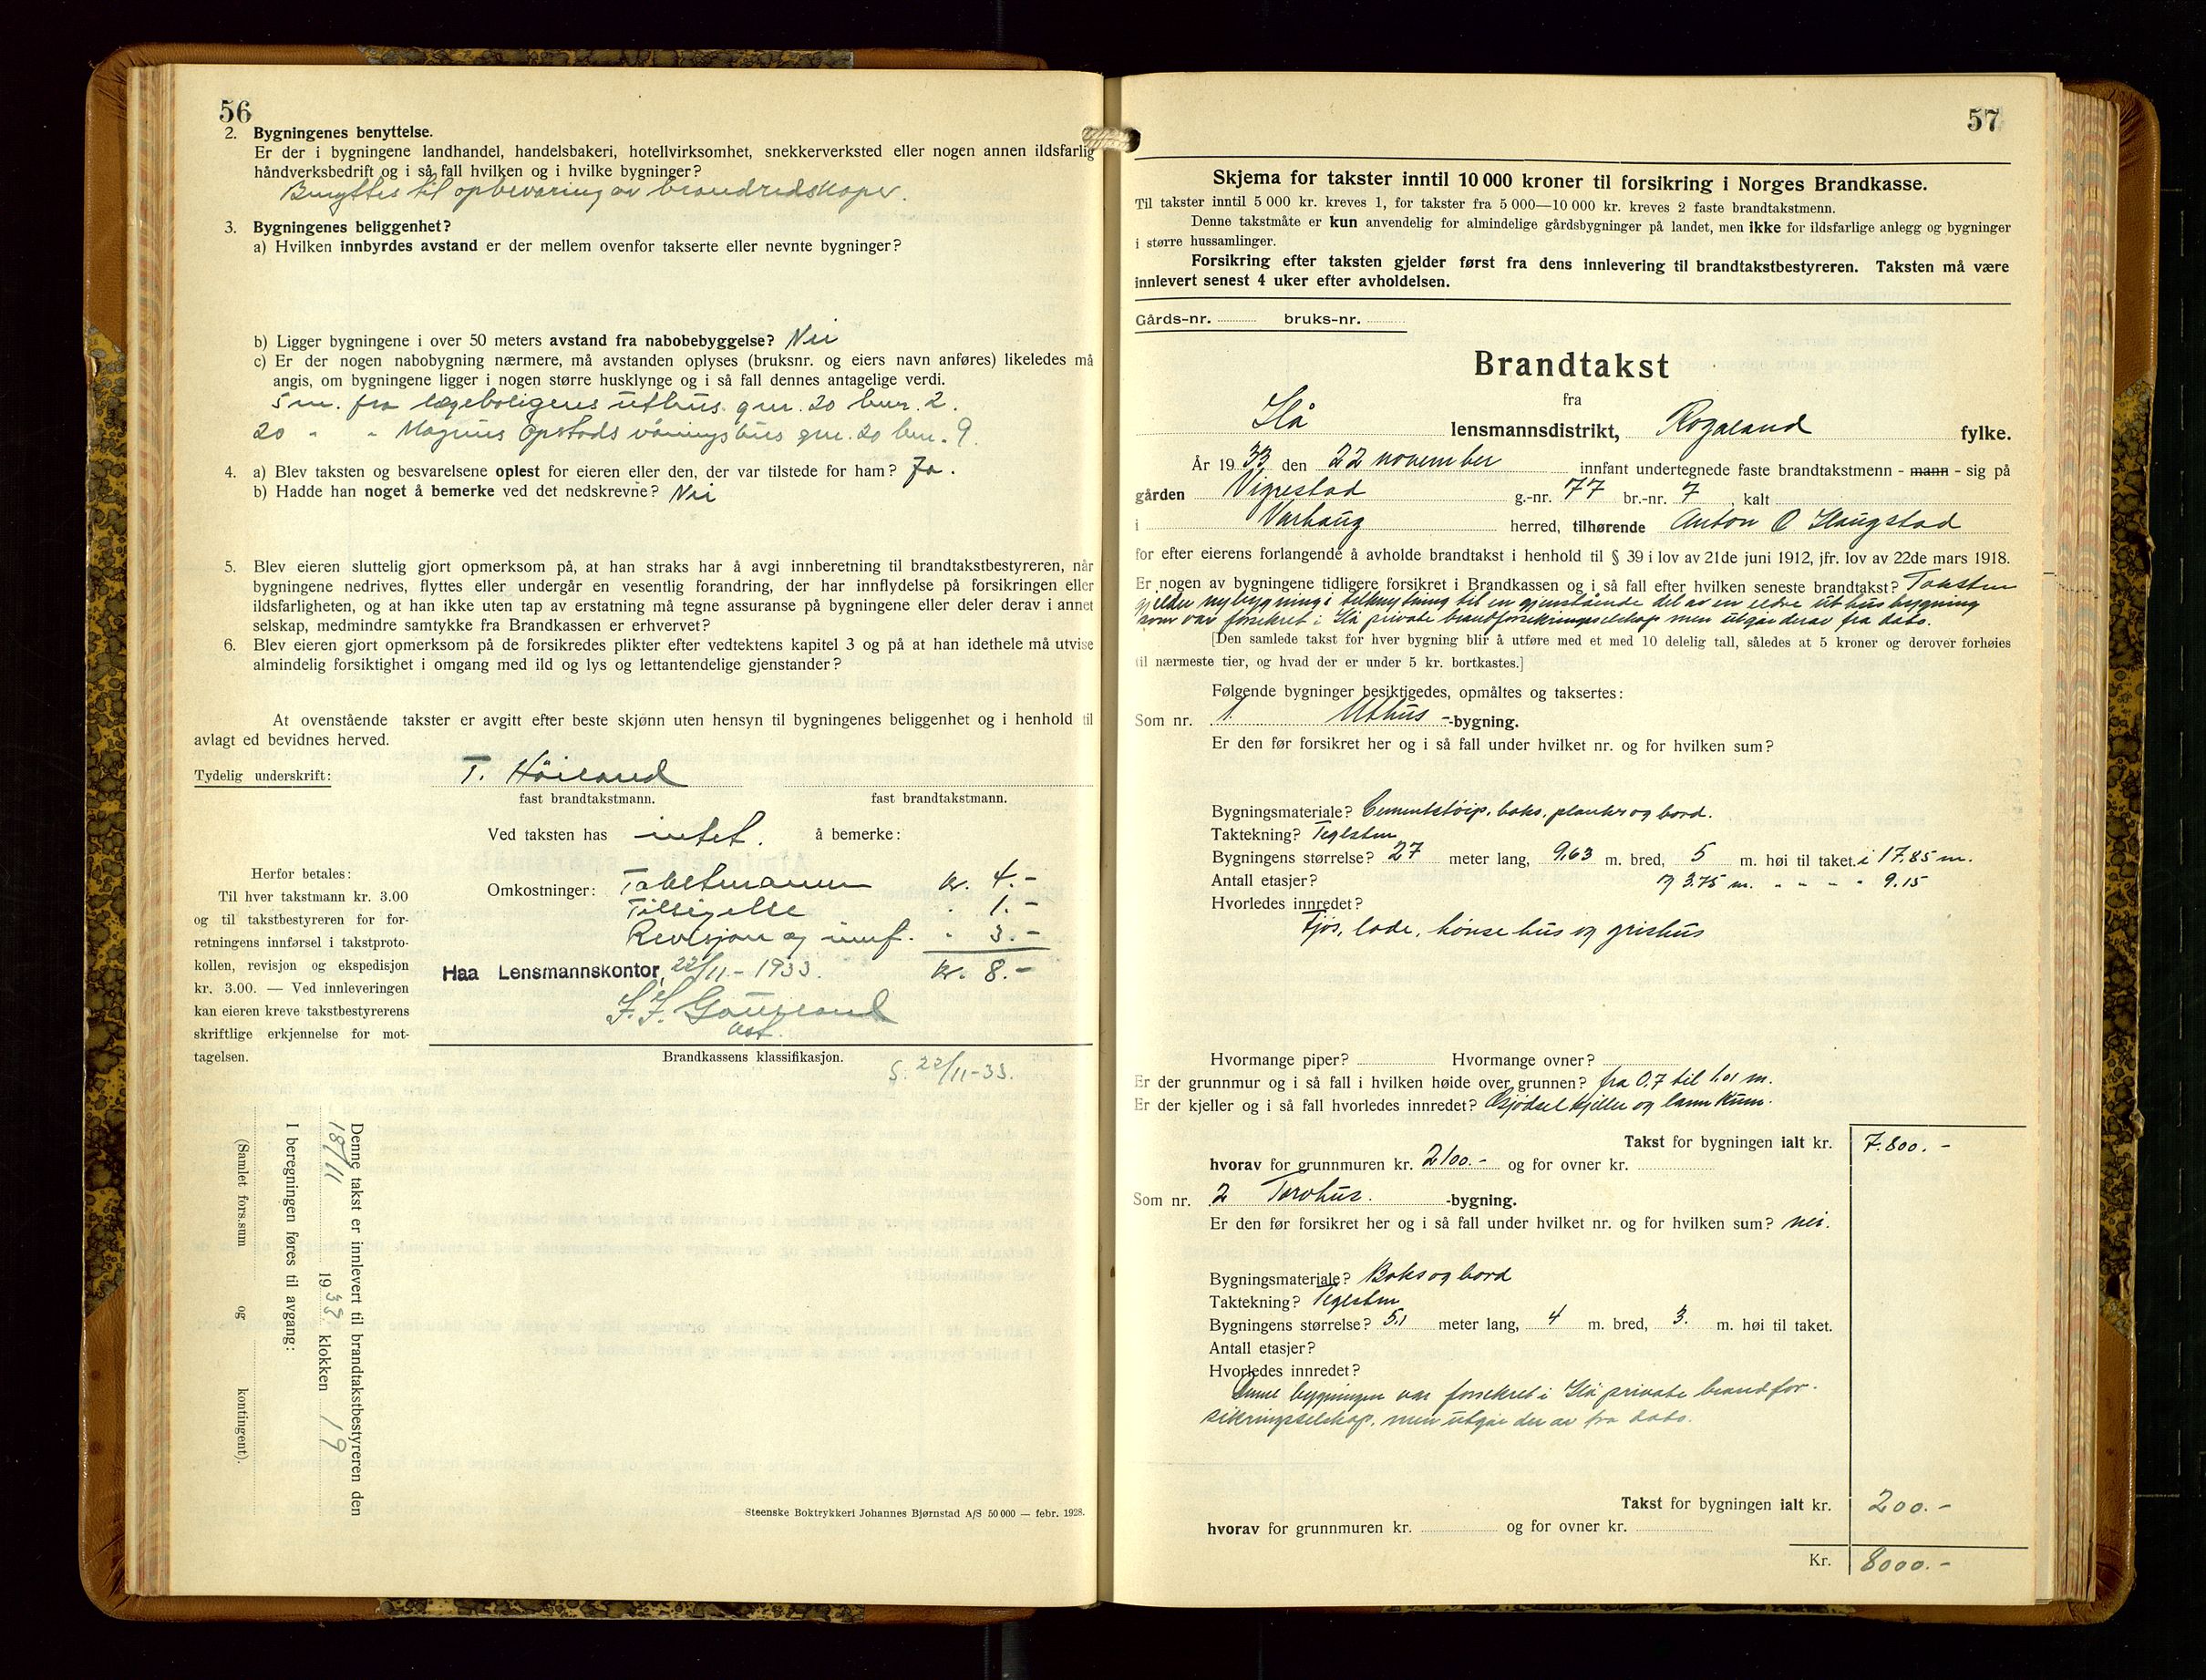 56
2. Bygningenes benyttelse.
Er der i bygningene landhandel, handelsbakeri, hotellvirksomhet, snekkerverksted eller nogen annen ildsfarlig
håndverksbedrift og i så fall hvilken og i hvilke bygninger?
Benyttes til opbevaring av brandredskaper.
3. Bygningenes beliggenhet?
a) Hvilken innbyrdes avstand er der mellem ovenfor takserte eller nevnte bygninger?
b) Ligger bygningene i over 50 meters avstand fra nabobebyggelse? Nei
c) Er der nogen nabobygning nærmere, må avstanden oplyses (bruksnr. og eiers navn anføres) likeledes må
angis, om bygningene ligger i nogen større husklynge og i så fall dennes antagelige verdi.
5 m. fra lægeboligens uthus gnr. 20 bnr. 2.
20 " " Magnus Opstads våningshus gnr. 20 bnr. 9.
4. a) Blev taksten og besvarelsene oplest for eieren eller den, der var tilstede for ham? Ja.
b) Hadde han noget å bemerke ved det nedskrevne? Nei
5. Blev eieren sluttelig gjort opmerksom på, at han straks har å avgi innberetning til brandtakstbestyreren, når
bygningene nedrives, flyttes eller undergår en vesentlig forandring, der har innflydelse på forsikringen eller
ildsfarligheten, og at han ikke uten tap av erstatning må tegne assuranse på bygningene eller deler derav i annet
selskap, medmindre samtykke fra Brandkassen er erhvervet?
6. Blev eieren gjort opmerksom på de forsikredes plikter efter vedtektens kapitel 3 og på at han idethele må utvise
almindelig forsiktighet i omgang med ild og lys og lettantendelige gjenstander?
At ovenstående takster er avgitt efter beste skjønn uten hensyn til bygningenes beliggenhet og i henhold til
avlagt ed bevidnes herved.
Tydelig underskrift: T. Höiland
fast brandtakstmann. fast brandtakstmann.
Ved taksten has intet. å bemerke:
Herfor betales:
Til hver takstmann kr. 3.00
og til takstbestyreren for for-
retningens innførsel i takstproto-
kollen, revisjon og ekspedisjon
kr. 3.00. — Ved innleveringen
kan eieren kreve takstbestyrerens
skriftlige erkjennelse for mot-
tagelsen.
Omkostninger: Takstmannen kr. 4.-
Tilsigelse " 1.-
Revisjon og innf. " 3.-
Haa Lensmannskontor, 22/11.-1933. kr. 8.-
Brandkassens klassifikasjon.
S. 22/11-33.
Denne takst er innlevert til brandtakstbestyreren den
18/11 1933 klokken 19
I beregningen føres til avgang:
(Samlet fors.sum og kontingent).
Steenske Boktrykkeri Johannes Bjørnstad A/S 50 000 — febr. 1928.
57
Skjema for takster inntil 10 000 kroner til forsikring i Norges Brandkasse.
Til takster inntil 5 000 kr. kreves 1, for takster fra 5 000—10 000 kr. kreves 2 faste brandtakstmenn.
Denne takstmåte er kun anvendelig for almindelige gårdsbygninger på landet, men ikke for ildsfarlige anlegg og bygninger
i større hussamlinger.
Forsikring efter taksten gjelder først fra dens innlevering til brandtakstbestyreren. Taksten må være
innlevert senest 4 uker efter avholdelsen.
Gårds-nr. bruks-nr.
Brandtakst
fra
Hå lensmannsdistrikt, Rogaland fylke.
År 1933 den 22 november innfant undertegnede faste brandtakstmenn - mann - sig på
gården Vigrestad g.-nr. 77 br.-nr. 7, kalt
i Varhaug herred, tilhørende Anton O Haugstad
for efter eierens forlangende å avholde brandtakst i henhold til § 39 i lov av 21de juni 1912, jfr. lov av 22de mars 1918.
Er nogen av bygningene tidligere forsikret i Brandkassen og i så fall efter hvilken seneste brandtakst? Taksten
gjelder nybygning i tilknytning til en gjenstående del av en eldre uthusbygning
som var forsikret i Hå private brandforsikringsselskap men utgår derav fra dato.
[Den samlede takst for hver bygning blir å utføre med et med 10 delelig tall, således at 5 kroner og derover forhøies
til nærmeste tier, og hvad der er under 5 kr. bortkastes.]
Følgende bygninger besiktigedes, opmåltes og taksertes:
Som nr. 1. Uthus -bygning.
Er den før forsikret her og i så fall under hvilket nr. og for hvilken sum?
Bygningsmateriale? Cementstöip, baks, planker og bord.
Taktekning? Teglsten
Bygningens størrelse? 27 meter lang, 9,63 m. bred, 5 m. høi til taket. i 17.85 m.
Antall etasjer? og 3.75 m. " " " " 9.15
Hvorledes innredet?
Fjös, lade, hönsehus og grishus
Hvormange piper? Hvormange ovner?
Er der grunnmur og i så fall i hvilken høide over grunnen? fra 0,7 til 1,01 m.
Er der kjeller og i så fall hvorledes innredet? Gjödselkjeller og lannkum.
Takst for bygningen ialt kr. 7.800.-
hvorav for grunnmuren kr. 2100.- og for ovner kr.
Som nr. 2 Torvhus. -bygning.
Er den før forsikret her og i så fall under hvilket nr. og for hvilken sum? nei.
Bygningsmateriale? Baks og bord
Taktekning? Teglsten
Bygningens størrelse? 5,1 meter lang, 4 m. bred, 3. m. høi til taket.
Antall etasjer?
Hvorledes innredet?
Denne bygningen var forsikret i Hå private brandfor-
sikringsselskap, men utgår der av fra dato.
Takst for bygningen ialt kr. 200.-
hvorav for grunnmuren kr. og for ovner kr.
Kr. 8000.-